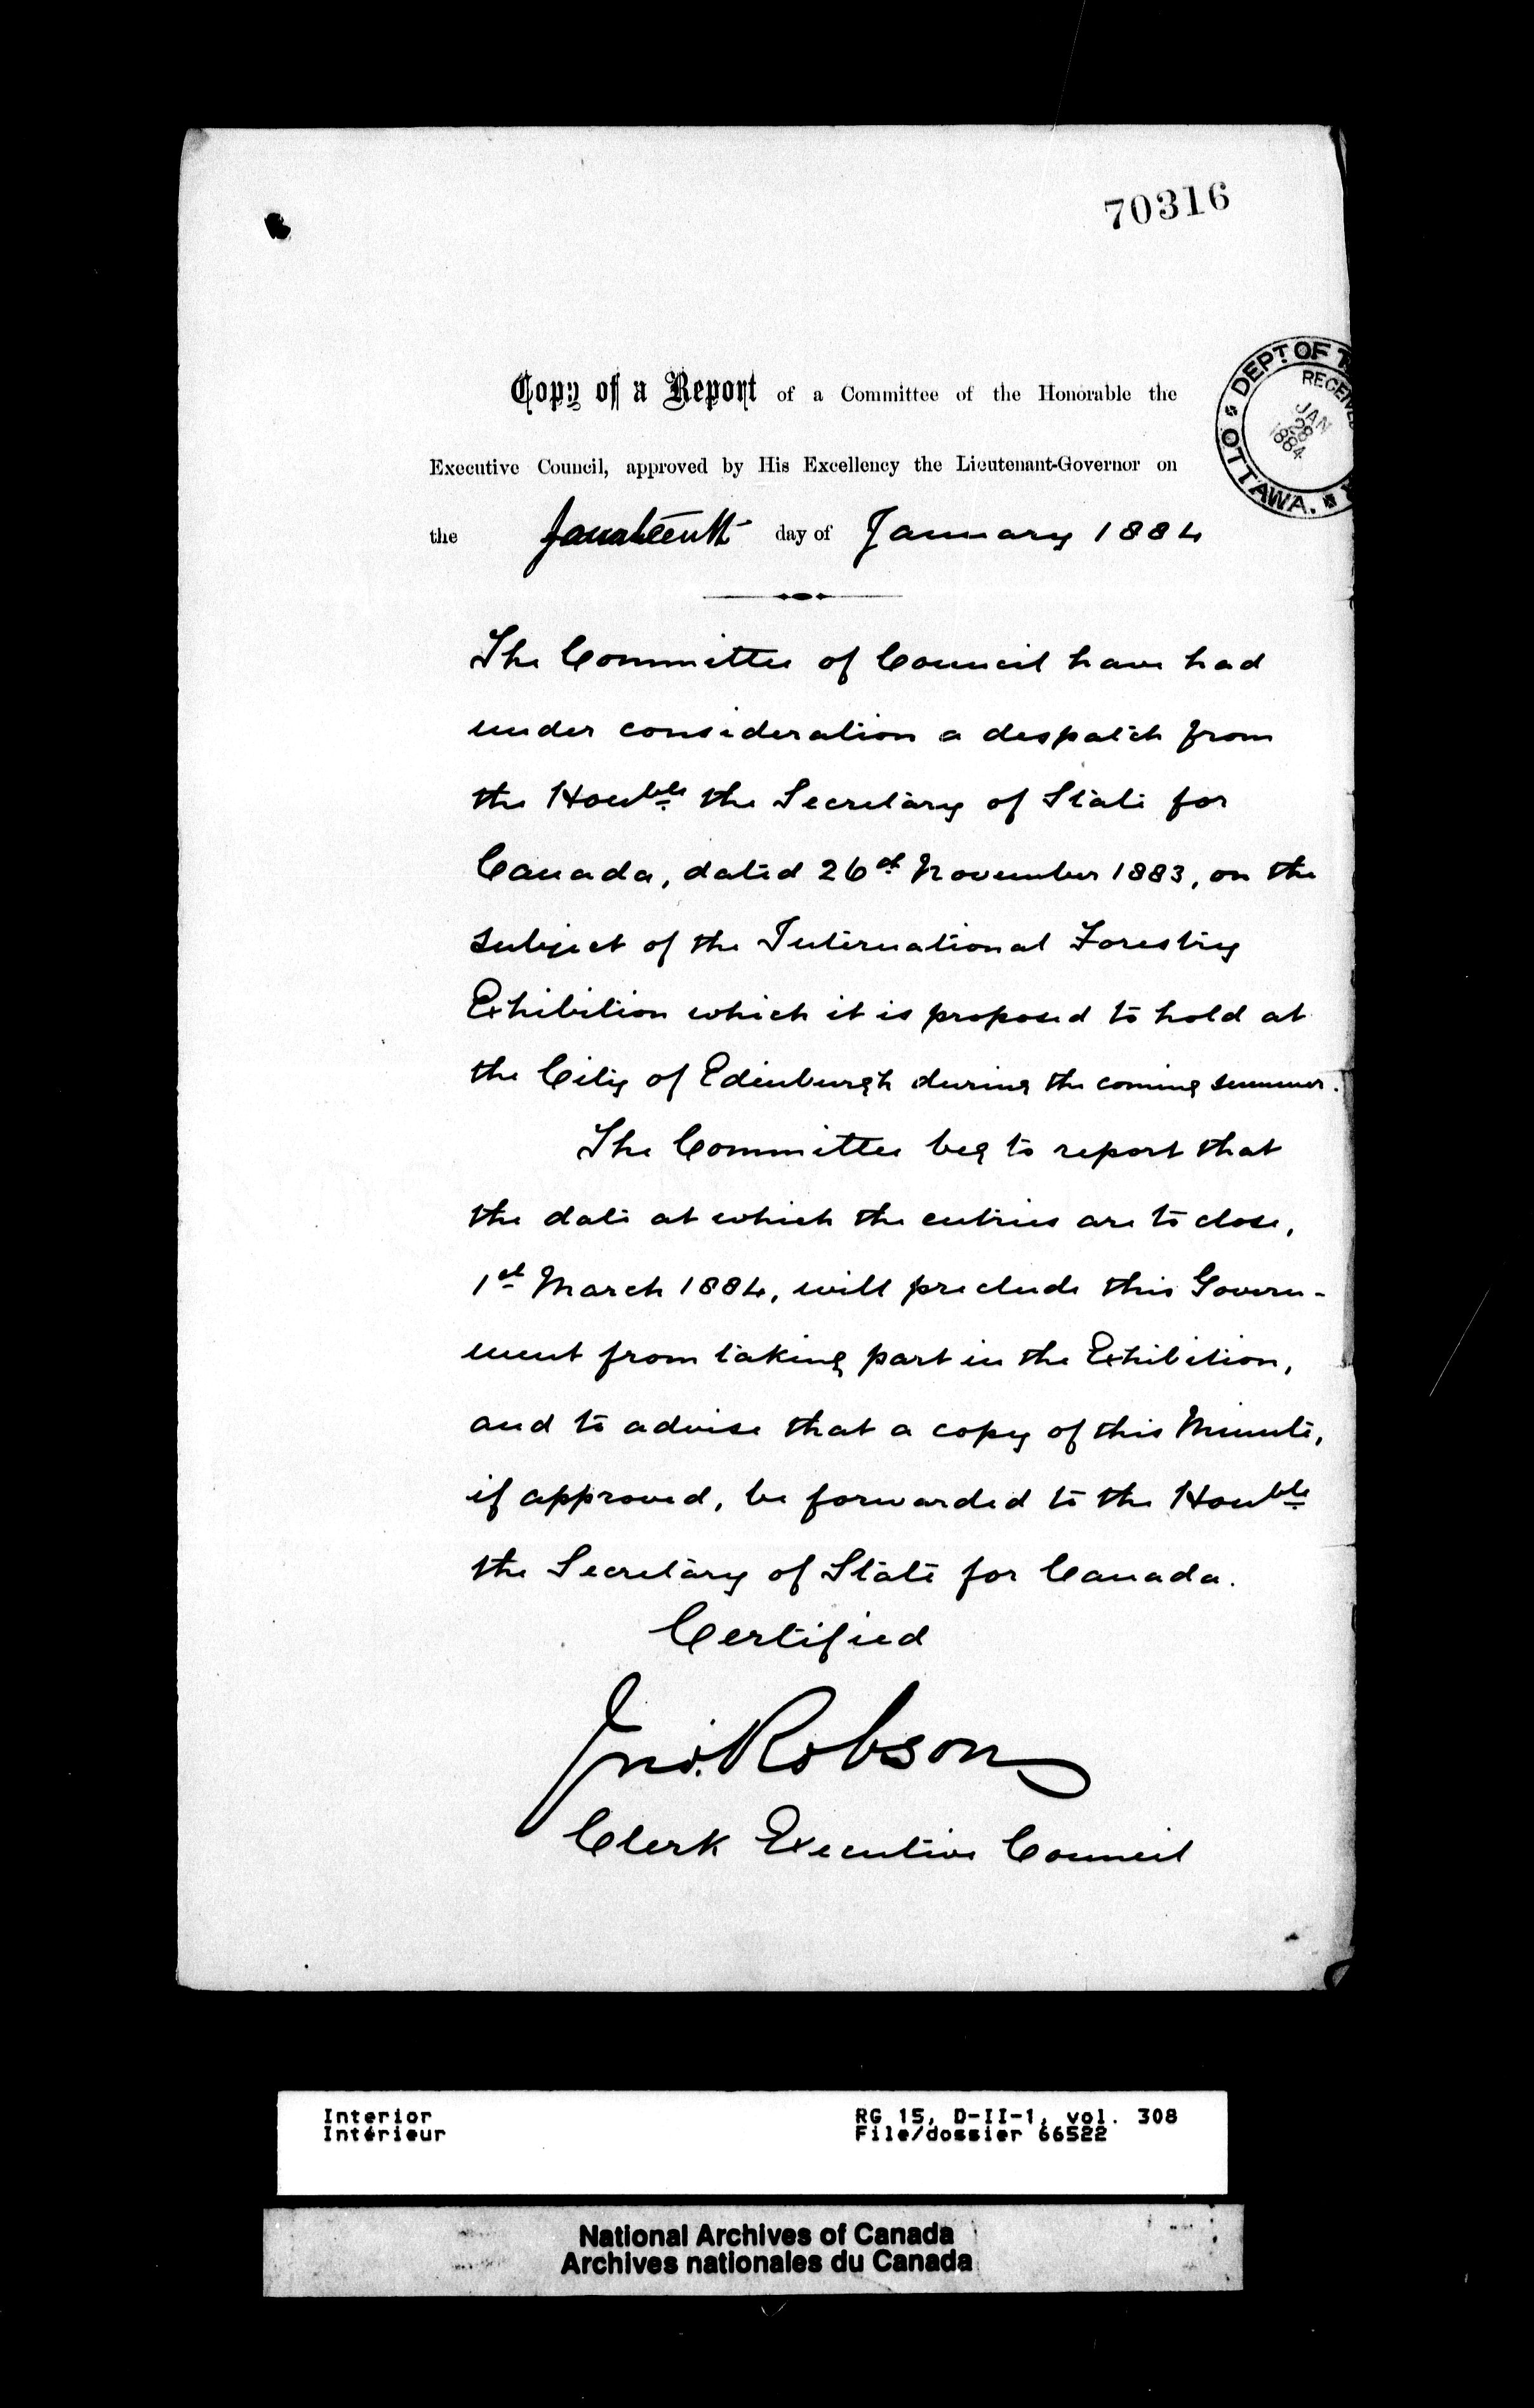 70316
DEPT. OF T
RECEIVED
JAN
28
1884
OTTAWA.
Copy of a Report of a Committee of the Honorable the
Executive Council, approved by His Excellency the Lieutenant-Governor on
the fourteenth day of January 1884
The Committee of Council have had
under consideration a despatch from
the Honble the Secretary of State for
Canada, dated 26th November 1883, on the
subject of the International Forestry
Exhibition which it is proposed to hold at
the City of Edinburgh during the coming summer.
The Committee beg to report that
the date at which the entries are to close,
1st March 1884, will preclude this Govern-
ment from taking part in the Exhibition,
and to advise that a copy of this Minute,
if approved, be forwarded to the Honble
the Secretary of State for Canada.
Certified
Jno. Robson
Clerk Executive Council
Interior RG 15, D-II-1, vol. 308
Intérieur File/dossier 66522
National Archives of Canada
Archives nationales du Canada